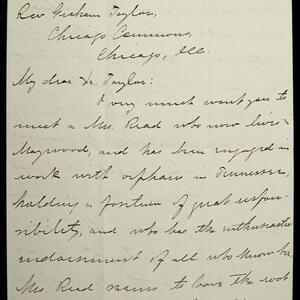 Rev Graham Taylor,
Chicago Commons,
Chicago, Ill.
My dear Dr. Taylor:
I very much want you to
meet a Mrs. Read who now lives in
Maywood, and has been engaged in
work with orphans in Tennessee,
holding a position of great respon-
sibility, and who has the enthusiastic
endorsement of all who know her.
Mrs. Read means to leave the work